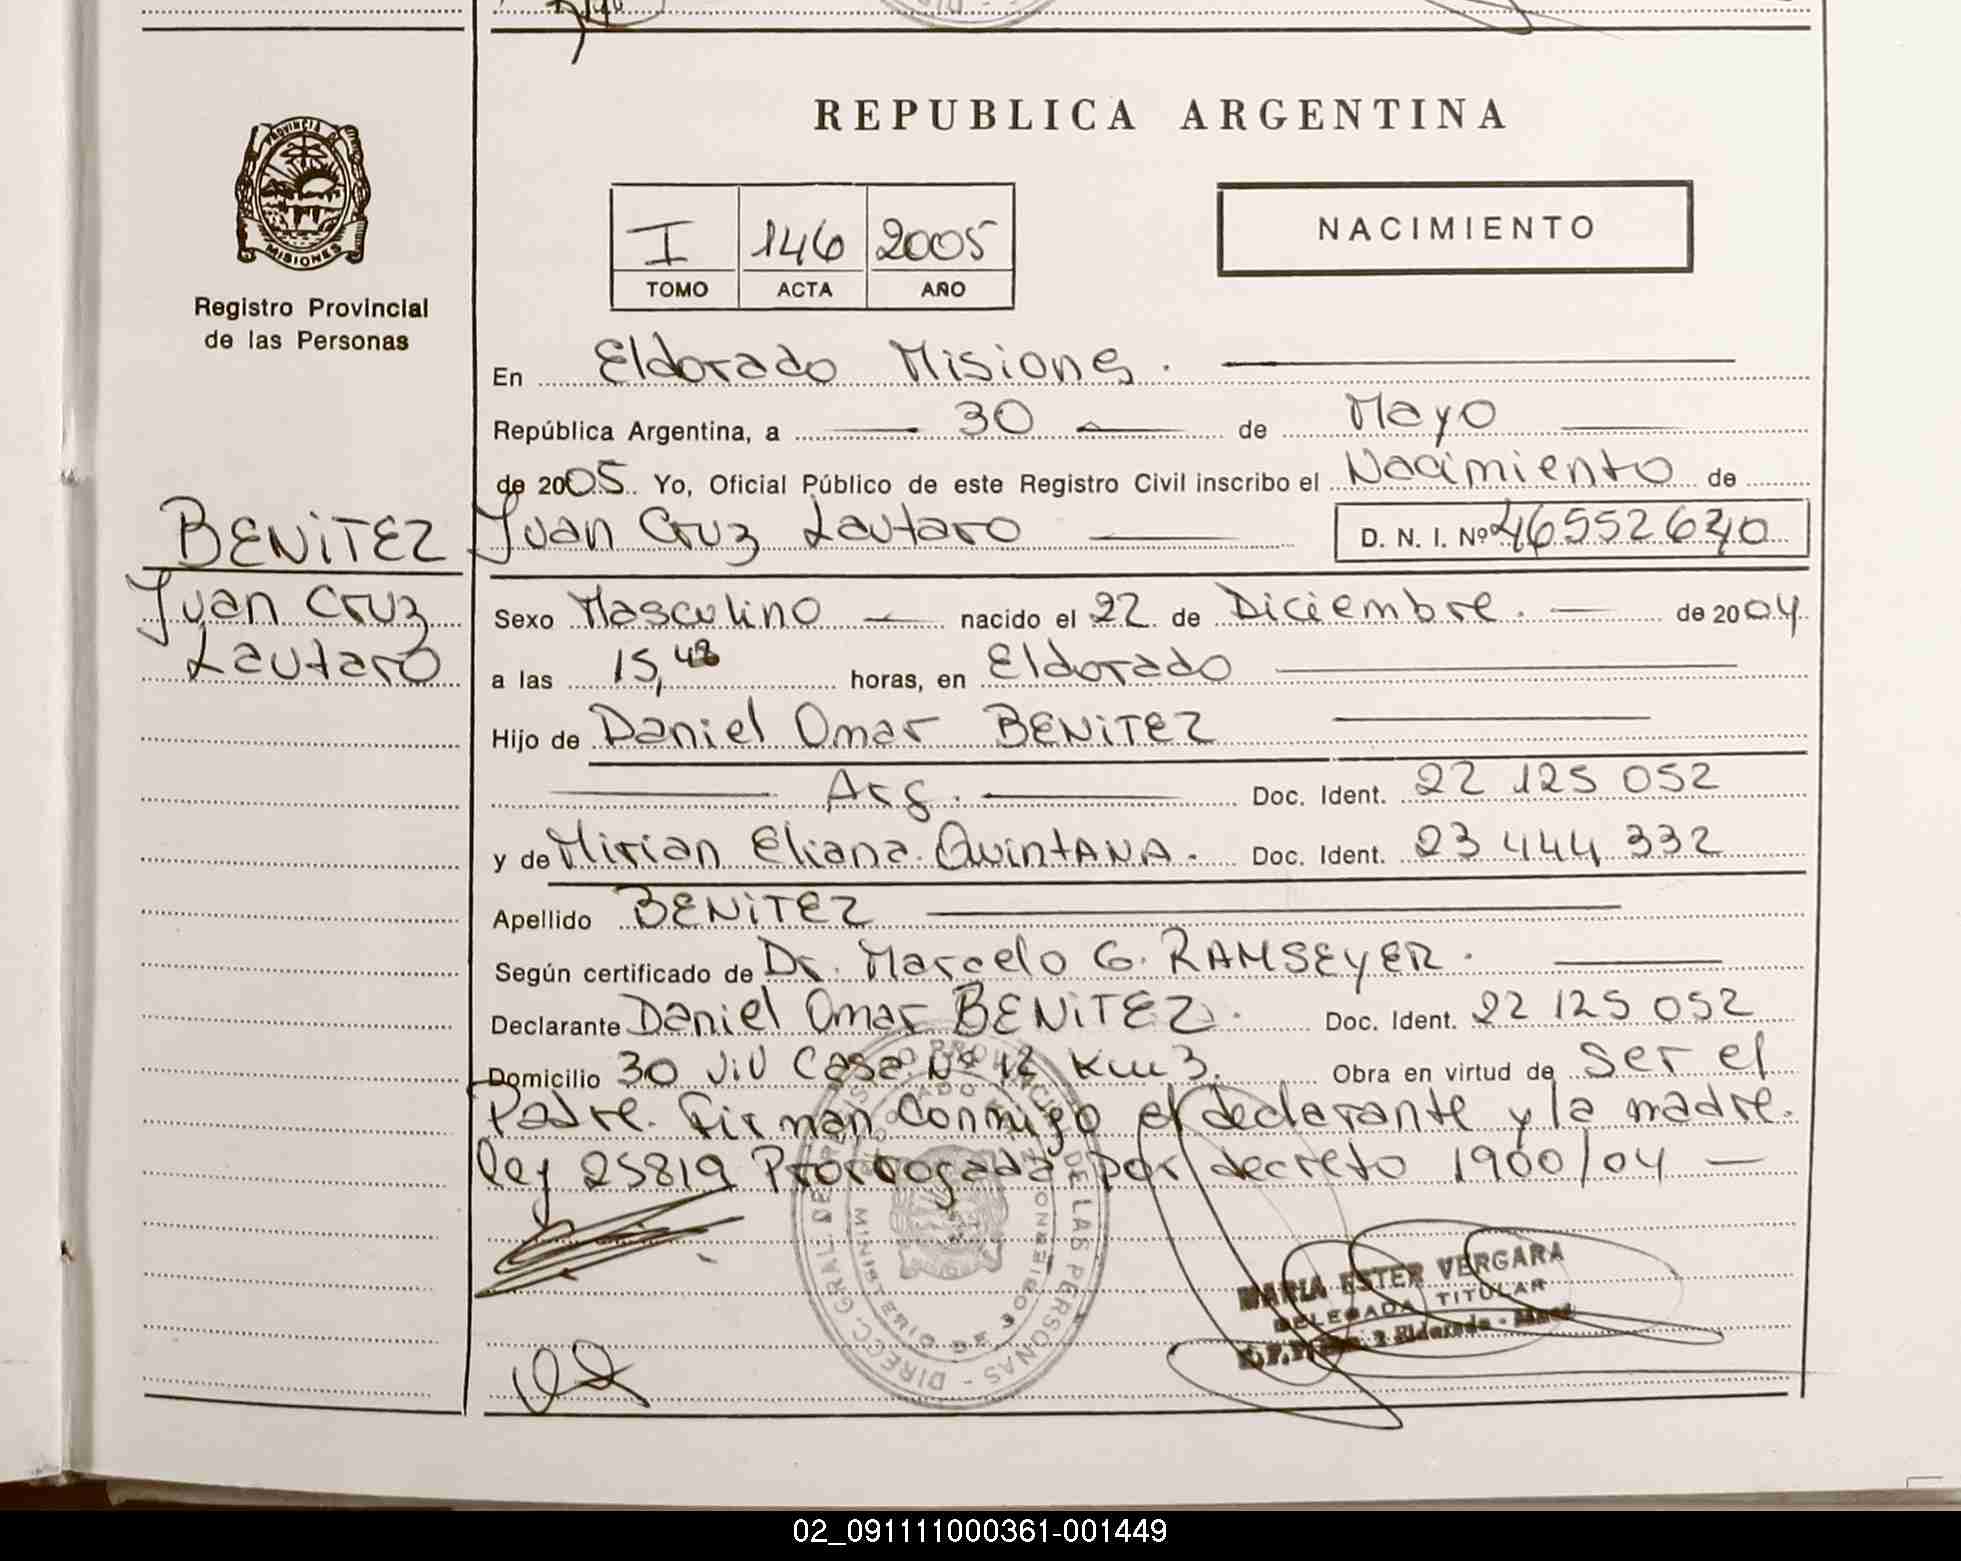 REPUBLICA ARGENTINA
PROVINCIA DE
MISIONES
Registro Provincial
de las Personas
I 146 2005
TOMO ACTA AÑO
NACIMIENTO
En Eldorado Misiones.
República Argentina, a 30 de Mayo
de 2005. Yo, Oficial Público de este Registro Civil inscribo el Nacimiento de
BENITEZ
Juan Cruz
Lautaro
Juan Cruz Lautaro D. N. I. Nº
Sexo Masculino nacido el 22 de Diciembre. de 2004
a las 15,48 horas, en Eldorado
Hijo de Daniel Omar BENITEZ
Arg. Doc. Ident. 22 125 052
y de Mirian Eliana Quintana. Doc. Ident. 23 444 332
Apellido BENITEZ
Según certificado de Dr. Marcelo G. RAMSEYER.
Declarante Daniel Omar BENITEZ. Doc. Ident. 22 125 052
Domicilio 30 viv Casa Nº 12 Km 3. Obra en virtud de Ser el
Padre. Firman Conmigo el declarante y la madre.
ley 25819 Prorrogada por decreto 1900/04
DIREC. GRAL. DE REGISTRO PROVINCIAL DE LAS PERSONAS
MINISTERIO DE GOBIERNO
MARIA ESTER VERGARA
DELEGADA TITULAR
Eldorado
02_091111000361-001449